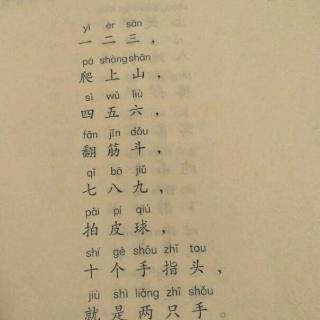 yī èr sān
一二三，
pá shàng shān
爬上山，
sì wǔ liù
四五六，
fān jīn dǒu
翻筋斗，
qī bā jiǔ
七八九，
pāi pí qiú
拍皮球，
shí gè shǒu zhǐ tou
十个手指头，
jiù shì liǎng zhī shǒu
就是两只手。